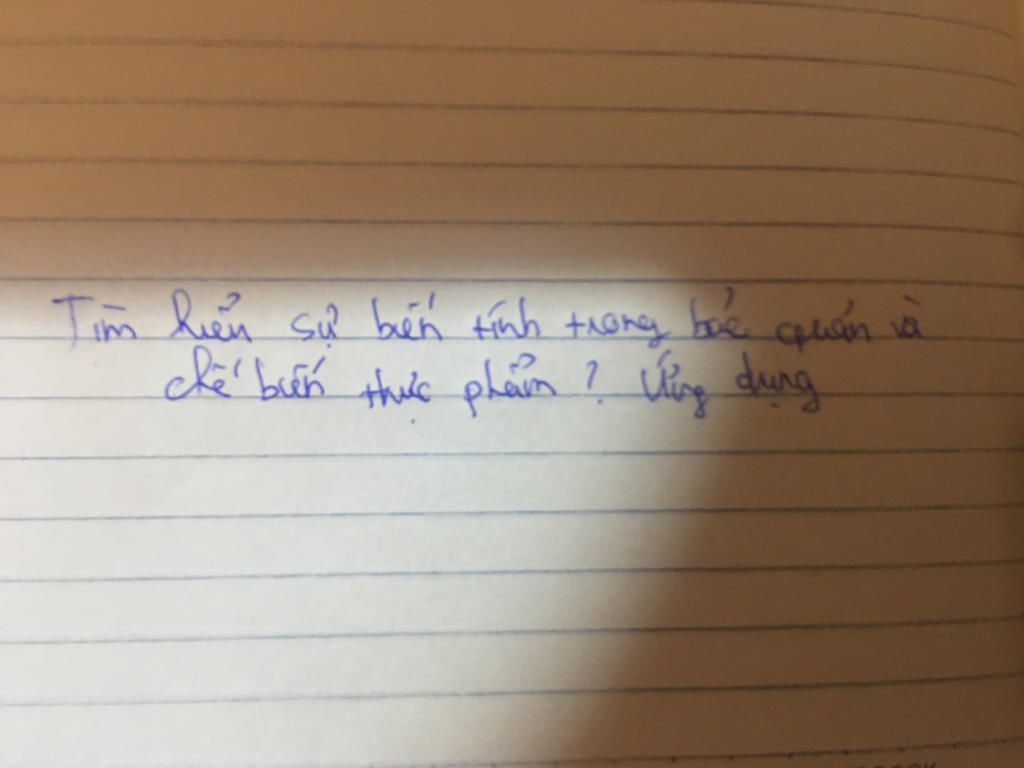 Tìm hiểu sự biến tính trong bảo quản và
chế biến thực phẩm? Ứng dụng